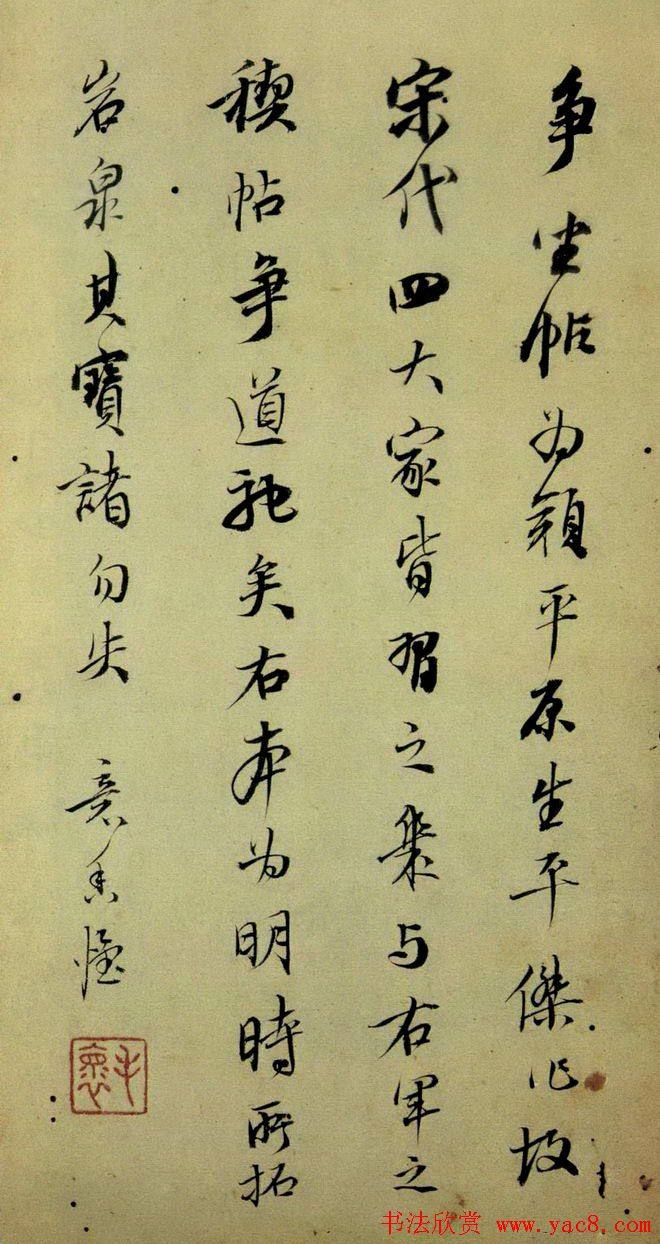 争坐帖为顔平原生平傑作故
宋代四大家皆習之与右軍之
稧帖争道矣右本为明時所拓
岩泉其寶諸勿失
书法欣赏 www.yac8.com